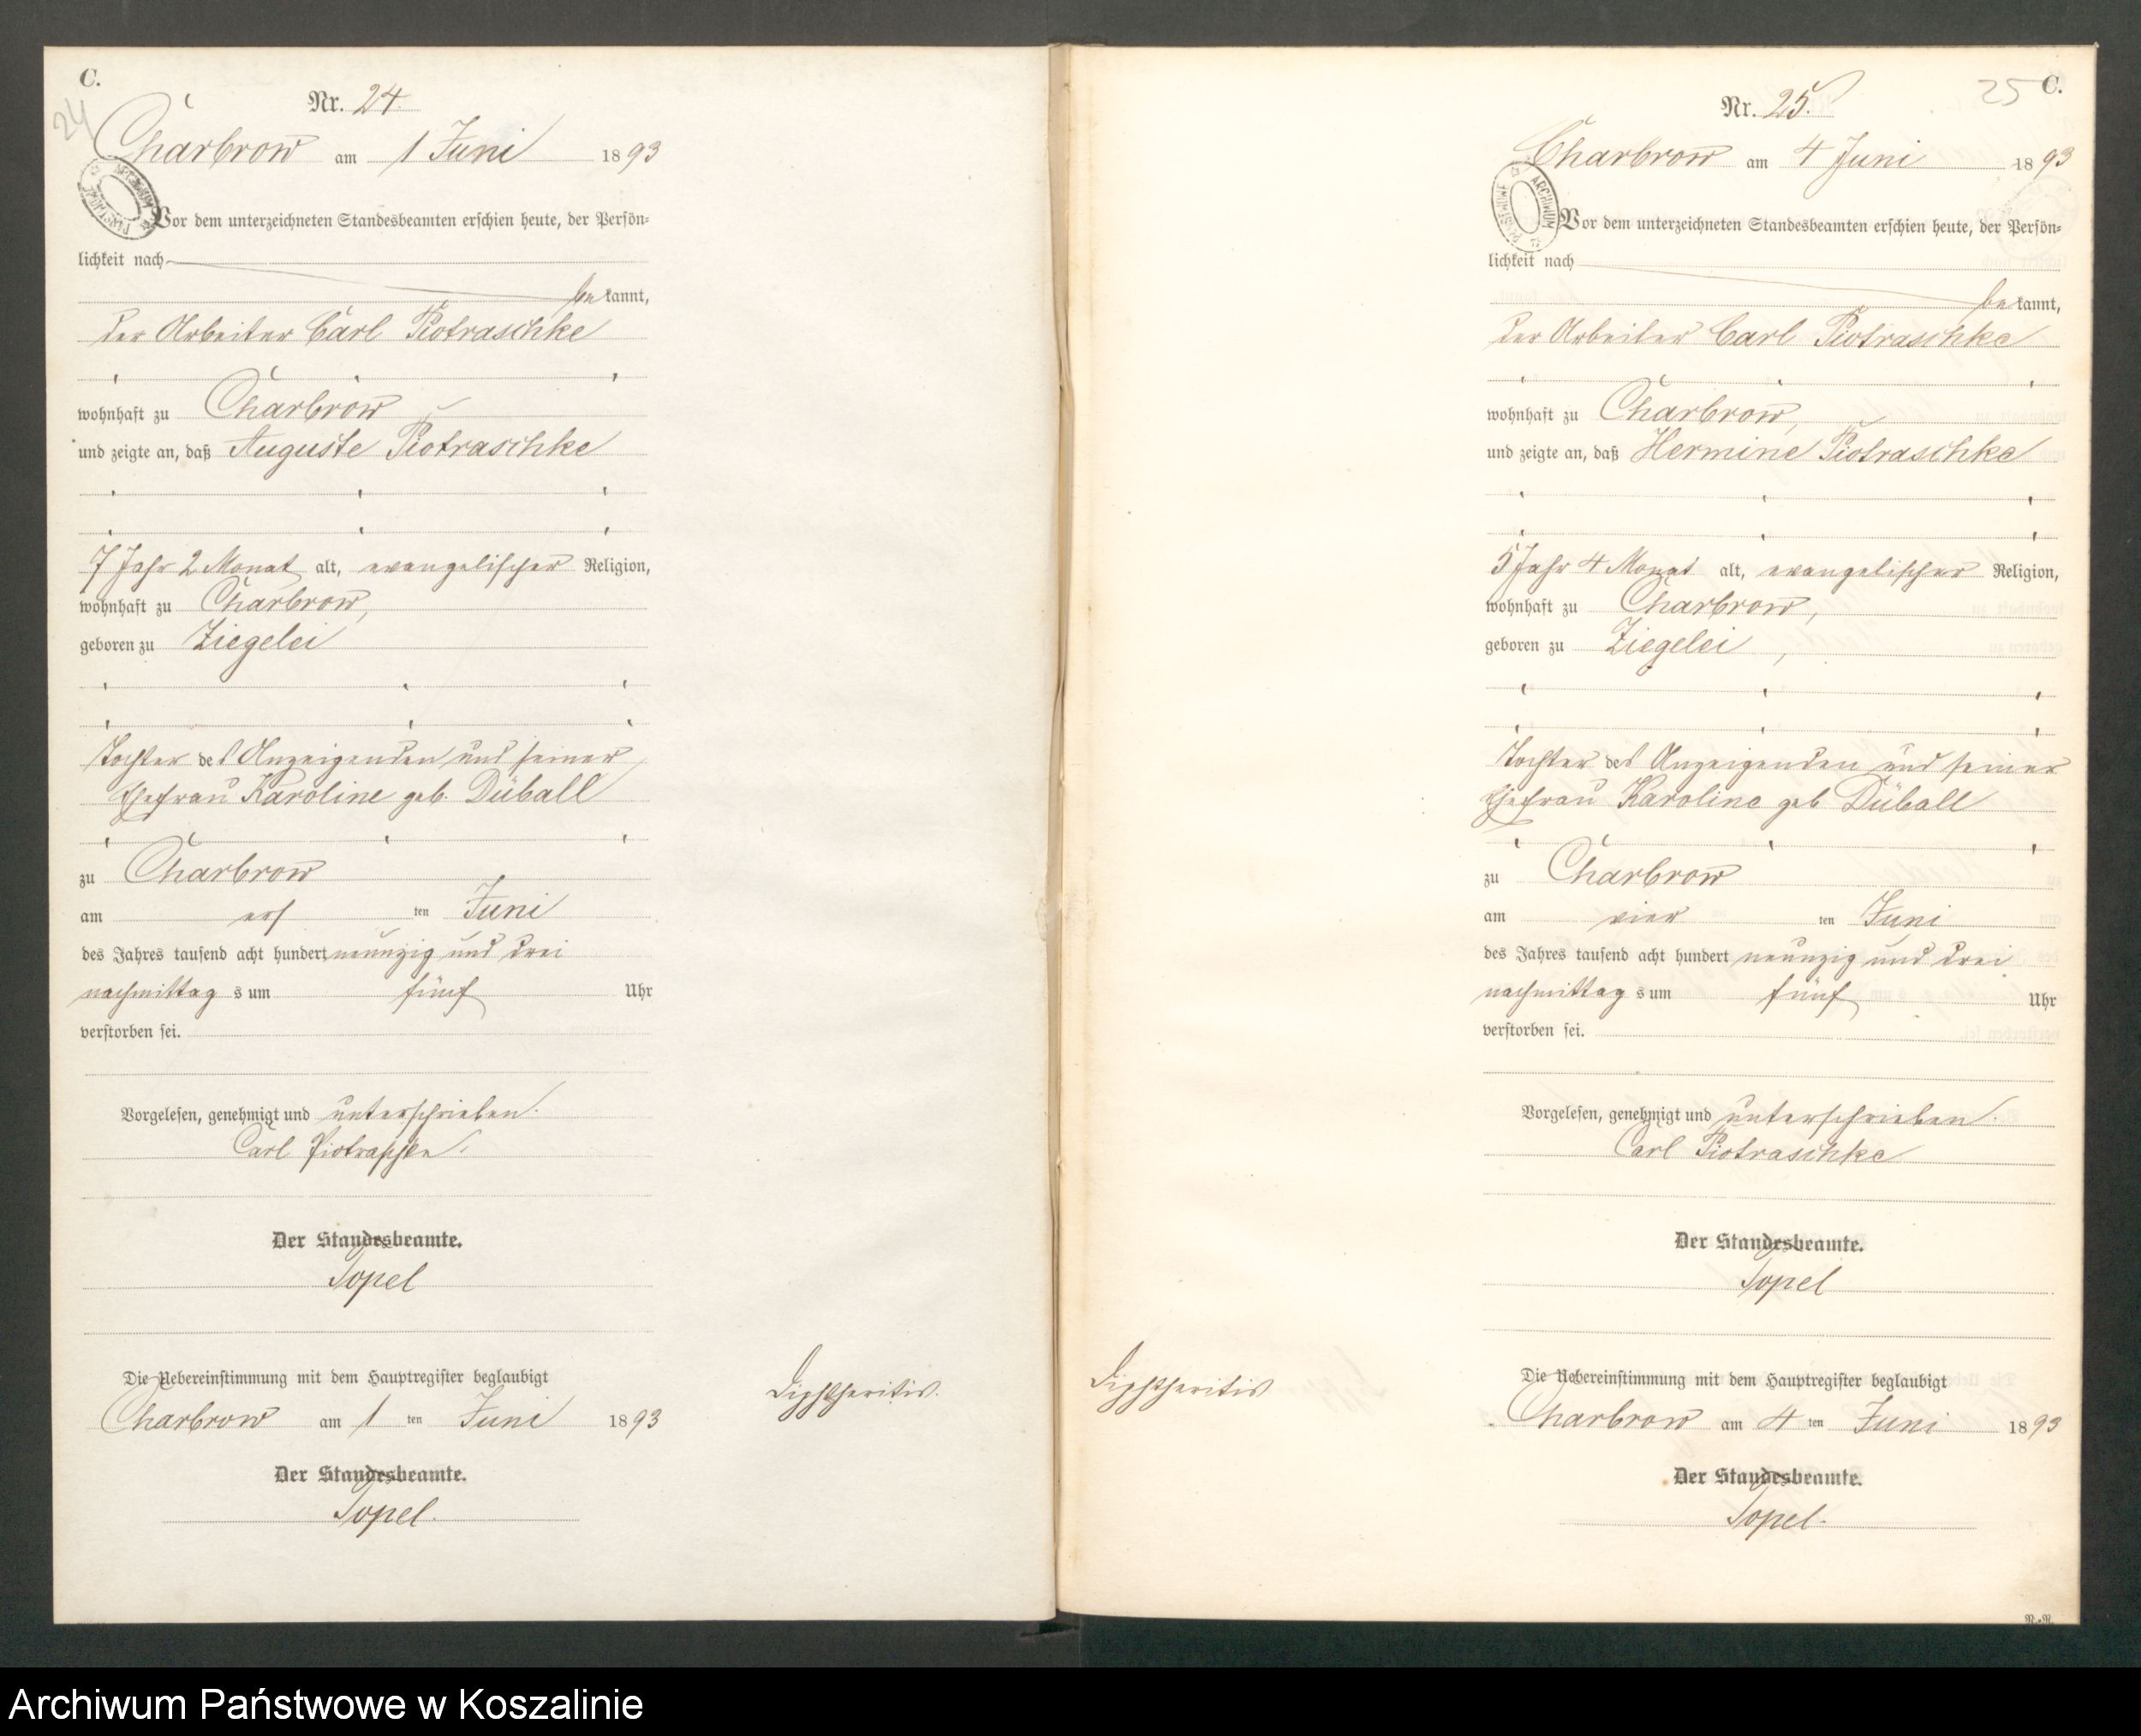 C.
24
Nr. 24.
Charbrow am 1 Juni 1893
Vor dem unterzeichneten Standesbeamten erschien heute, der Persön-
lichkeit nach
bekannt,
der Arbeiter Carl Piotraschke
wohnhaft zu Charbrow
und zeigte an, daß Auguste Piotraschke
7 Jahr 2 Monat alt, evangelischer Religion,
wohnhaft zu Charbrow,
geboren zu Ziegelei
Tochter des Anzeigenden und seiner
Ehefrau Karoline geb. Düball
zu Charbrow
am ersten Juni
des Jahres tausend acht hundert neunzig und drei
nachmittags um fünf Uhr
verstorben sei.
Vorgelesen, genehmigt und unterschrieben.
Carl Piotraschke.
Der Standesbeamte.
Topel
Die Uebereinstimmung mit dem Hauptregister beglaubigt
Charbrow am 1ten Juni 1893
Der Standesbeamte.
Topel.
Diphtheritis.
25 C.
Nr. 25.
Charbrow am 4 Juni 1893
ARCHIWUM PAŃSTWOWE
Vor dem unterzeichneten Standesbeamten erschien heute, der Persön-
lichkeit nach
bekannt,
der Arbeiter Carl Piotraschke
wohnhaft zu Charbrow,
und zeigte an, daß Hermine Piotraschke
5 Jahr 4 Monat alt, evangelischer Religion,
wohnhaft zu Charbrow,
geboren zu Ziegelei,
Tochter des Anzeigenden und seiner
Ehefrau Karoline geb Düball
zu Charbrow
am vierten Juni
des Jahres tausend acht hundert neunzig und drei
nachmittags um fünf Uhr
verstorben sei.
Vorgelesen, genehmigt und unterschrieben.
Carl Piotraschke
Der Standesbeamte.
Topel
Die Uebereinstimmung mit dem Hauptregister beglaubigt
Charbrow am 4ten Juni 1893
Der Standesbeamte.
Topel.
Diphtheritis
R.-R.
Archiwum Państwowe w Koszalinie